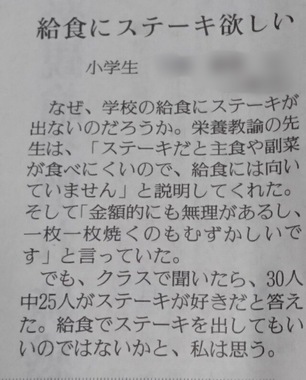 給食にステーキ欲しい
小学生
なぜ、学校の給食にステーキが
出ないのだろうか。栄養教諭の先
生は、「ステーキだと主食や副菜
が食べにくいので、給食には向い
ていません」と説明してくれた。
そして「金額的にも無理があるし、
一枚一枚焼くのもむずかしいで
す」と言っていた。
でも、クラスで聞いたら、30人
中25人がステーキが好きだと答え
た。給食でステーキを出してもい
いのではないかと、私は思う。